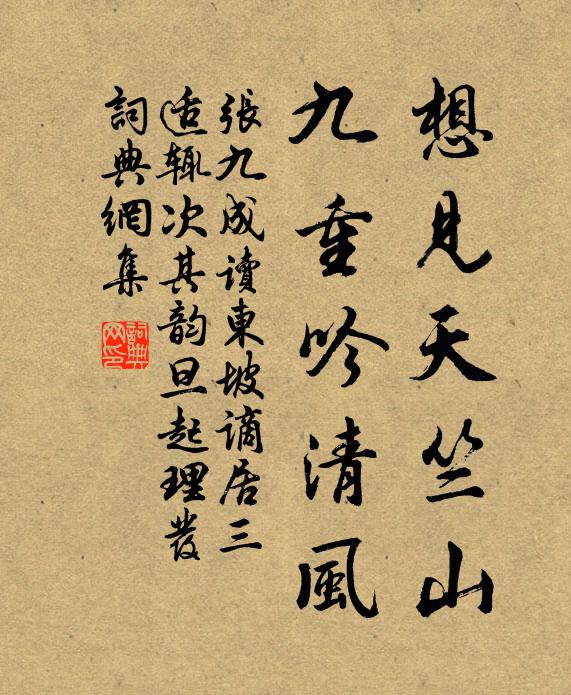 想見天竺山
九重吟清風
張九成讀東坡謫居三
适輒次其韵旦起理發
詞典網集
詞典网印